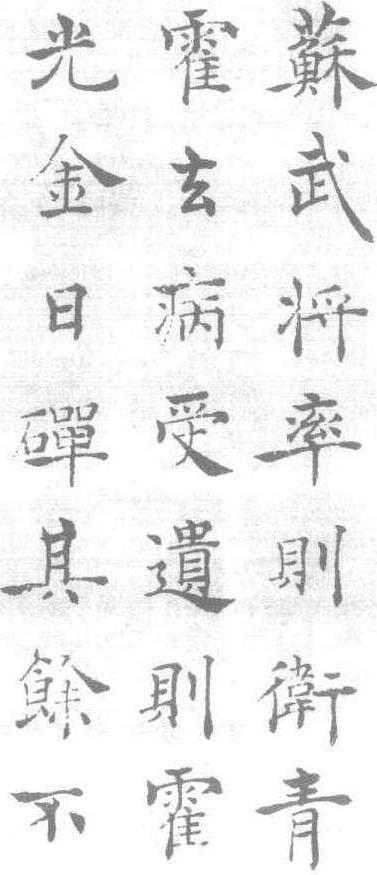 蘇武将率則衛青
霍去病受遺則霍
光金日磾其餘不